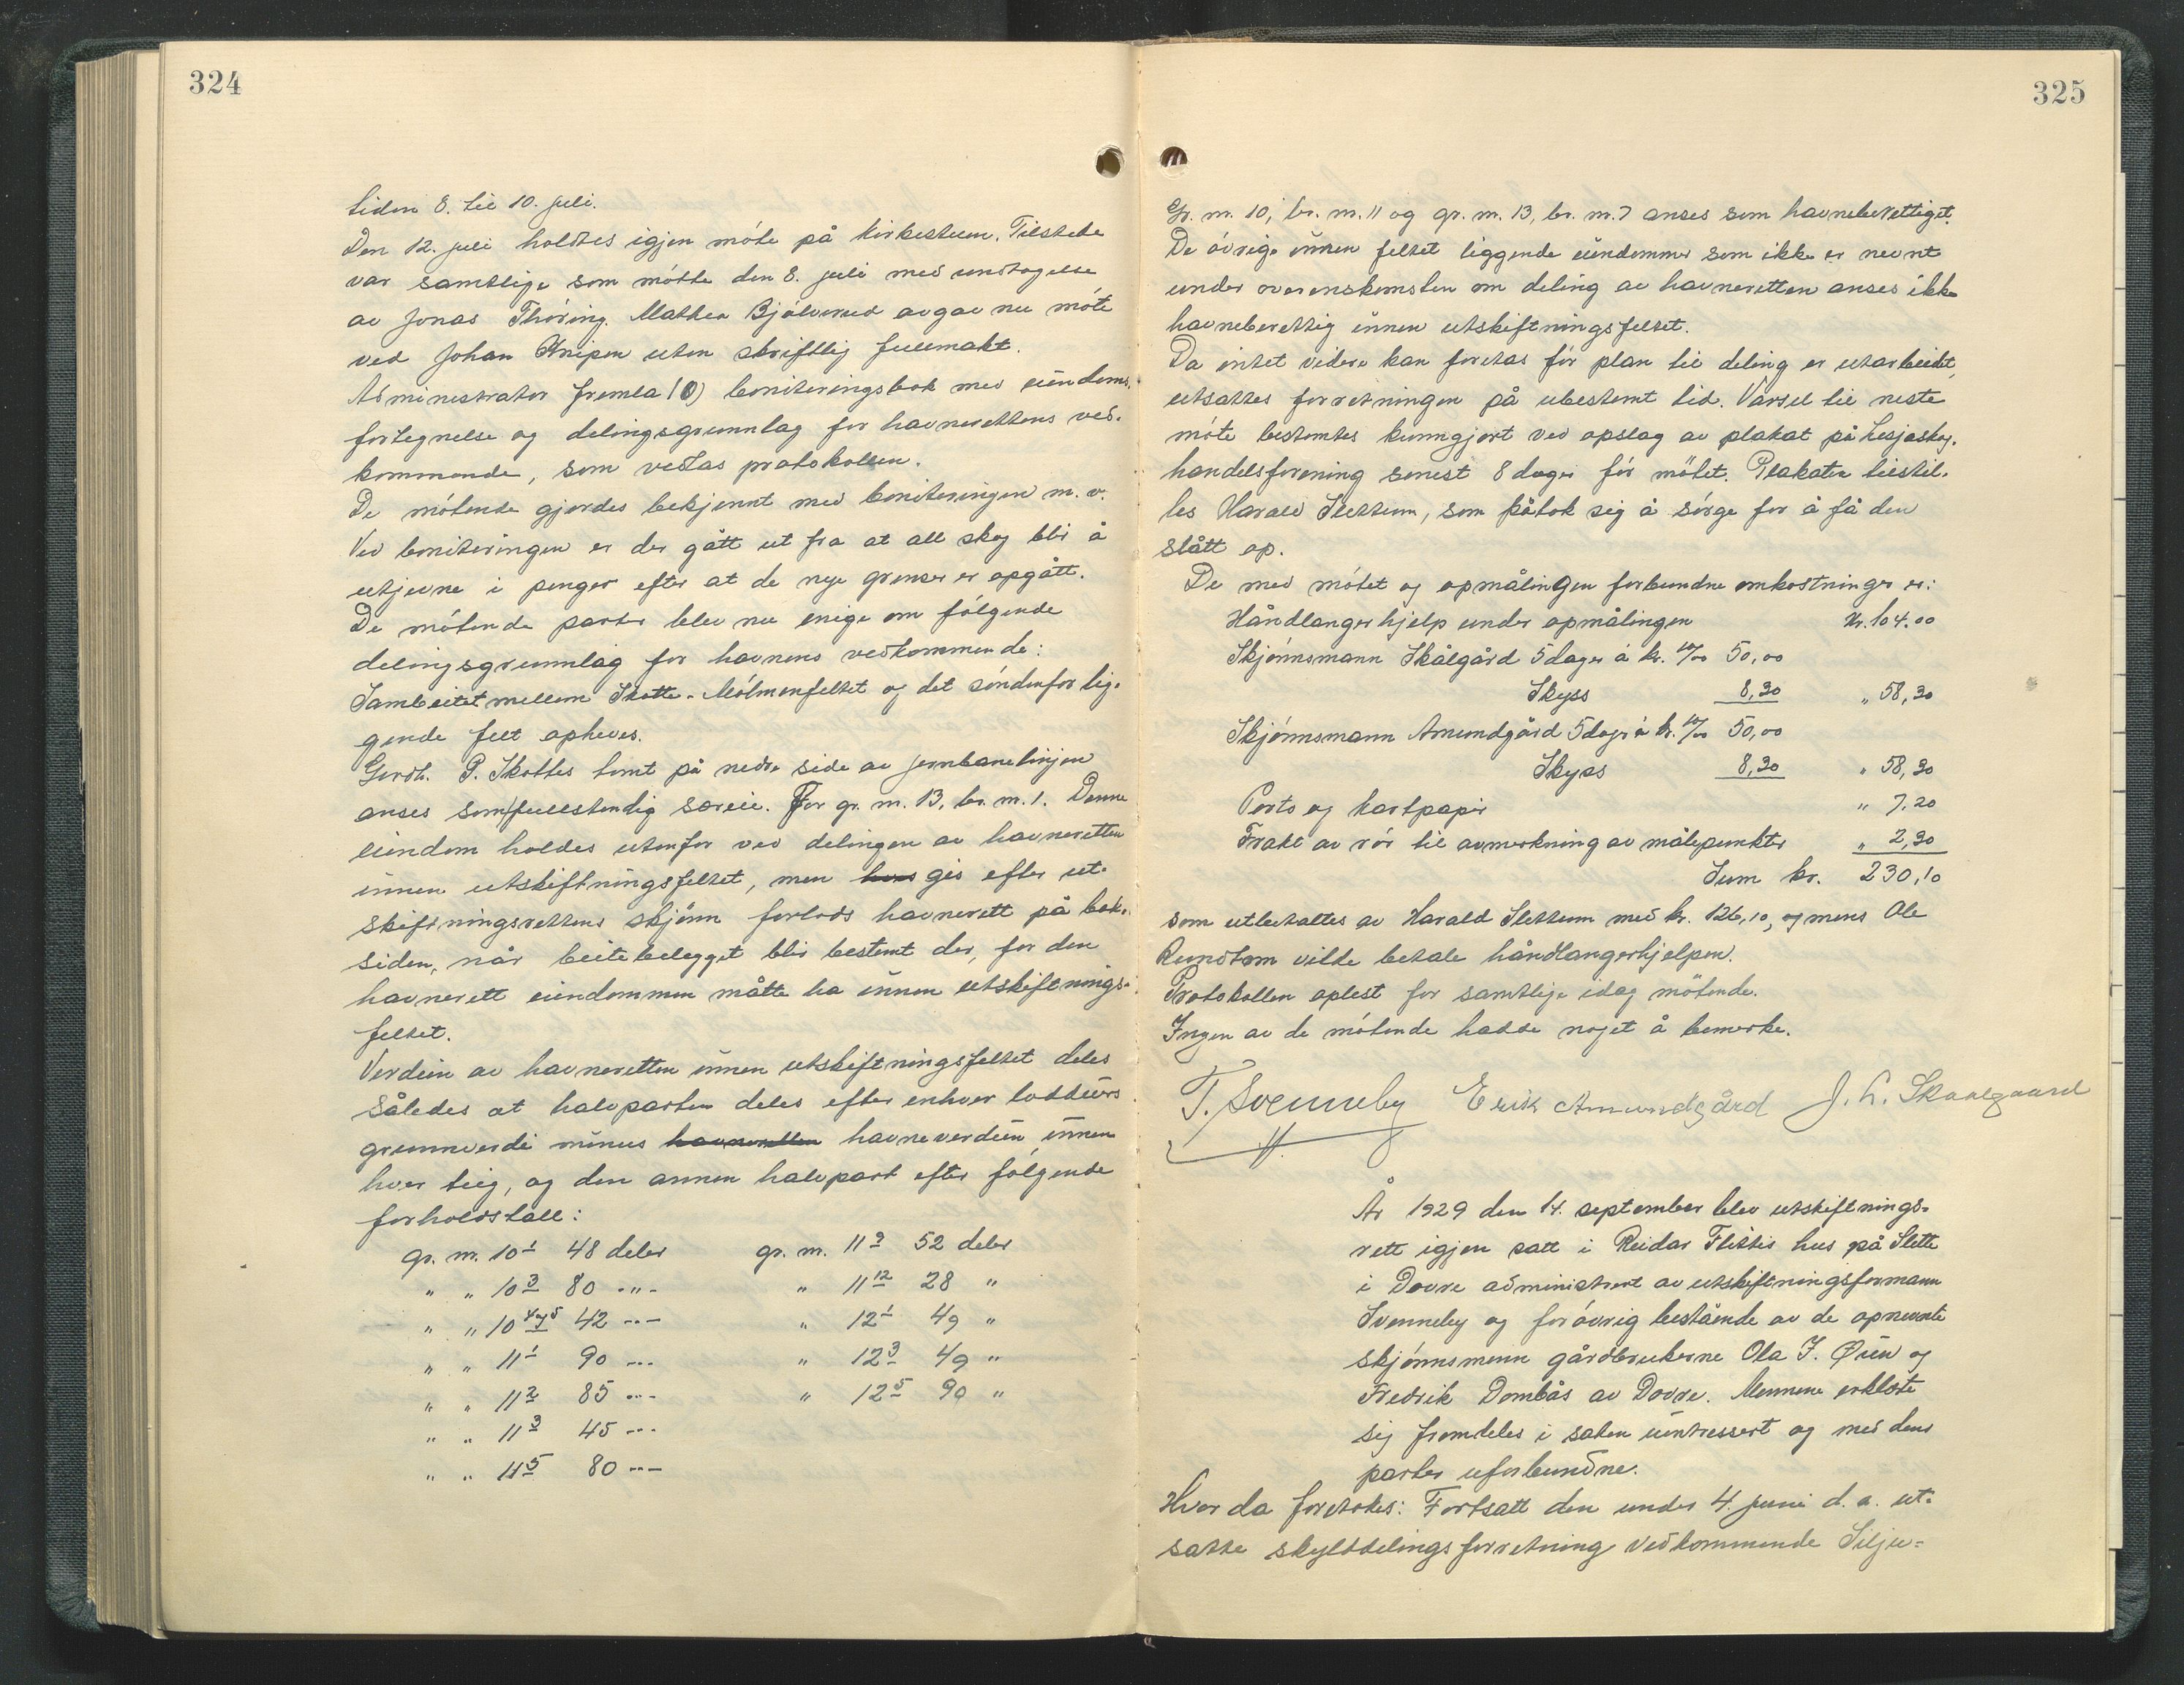 324
tiden 8. til 10. juli.
Den 12. juli holdtes igjen møte på Kirkestuen. Tilstede
var samtlige som møtte den 8. juli med undtagelse
av Jonas Thøring. Mathea Bjølverud avgav nu møte
ved Johan Knipen uten skriftlig fullmakt.
Administrator fremla (O) boniteringsbok med eiendoms-
fortegnelse og delingsgrunnlag for havnerettens ved-
kommende, som vedtas protokollen.
De møtende gjordes bekjennt med boniteringen m. v.
Ved boniteringen er der gått ut fra at all skog blir å
utjevne i penger efter at de nye grenser er opgått.
De møtende parter blev nu enige om følgende
delingsgrunnlag for havnens vedkommende:
Sambeitet mellem Skotte-Mølmenfeltet og det søndenfor lig-
gende felt opheves.
Gordh. P. Skottes tomt på nedre side av jernbanelinjen
anses som fullstendig særeie. For gr. nr. 13, br. nr. 1. Denne
eiendom holdes utenfor ved delingen av havneretten
innen utskiftningsfeltet, men hvis gis efter ut-
skiftningsrettens skjønn forlods havnerett på bak-
siden, når beitebelegget blir bestemt der, for den
havnerett eiendommen måtte ha innen utskiftnings-
feltet.
Verdien av havneretten innen utskiftningsfeltet deles
således at halvparten deles efter enhver lodddeiers
grunnverdi minus havneretten havneverdien innen
hver teig, og den annen halvpart efter følgende
forholdstall:
gr. nr. 10 1 48 deler gr. nr. 11 9 52 deler
" " 10 3 80 -"- " 11 12 28 "
" " 10 4 og 5 42 -"- " 12 1 49 "
" " 11 1 90 -"- " 12 3 49 "
" " 11 2 85 -"- " 12 5 90 "
" " 11 3 45 -"-
" " 11 5 80 -"-
325
Gr. nr. 10, br. nr. 11 og gr. nr. 13, br. nr. 7 anses som havneberettiget.
De øvrige innen feltet liggende eiendommer som ikke er nevnt
under overenskomsten om deling av havneretten anses ikke
havneberettig innen utskiftningsfeltet.
Da intet videre kan foretas før plan til deling er utarbeidet,
utsattes forretningen på ubestemt tid. Varsel til neste
møte bestemtes kunngjort ved opslag av plakat på Lesjaskog.
handelsforening senest 8 dager før møtet. Plakaten tilstil-
les Harald Slettum, som påtok sig å sørge for å få den
slått op.
De med møtet og opmålingen forbundne omkostninger er:
Håndlangerhjelp under opmålingen Kr. 104.00
Skjønnsmann Skålgård 5 dager á kr. 10/00 50,00
Skyss 8,30 " 58,30
Skjønnsmann Amundgård 5 dager á kr. 10/00 50,00
Skyss 8,30 " 58,30
Porto og kartpapir " 7,20
Frakt av rør til avmerkning av målepunkter " 2,30
Sum kr. 230,10
som utbetaltes av Harald Slettum med kr. 126,10, og mens Ole
Rundtom vilde betale håndlangerhjelpen.
Protokollen oplest for samtlige idag møtende.
Ingen av de møtende hadde noget å bemerke.
T. Svenneby Erik Amundgård J. L. Skaalgaard
År 1929 den 14. september blev utskiftnings-
rett igjen satt i Reidar Flittis hus på Slette
i Dovre administrert av utskiftningsformann
Svenneby og forøvrig bestående av de opnevnte
skjønnsmenn gårdbrukerne Ola J. Øien og
Fredrik Dombås av Dovre. Mennene erklærte
sig fremdeles i saken uintressert og med dens
parter uforbundne.
Hvor da foretokes: Fortsatt den under 4. juni d. a. ut-
satte skylddelingsforretning vedkommende Silju-